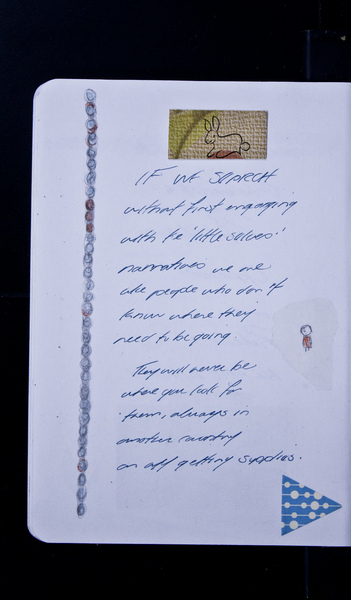 IF WE SEARCH
without first engaging
with the 'little selves'
narratives we are
like people who don't
know where they
need to be going
They will never be
where you look for
them, always in
another country
or off getting supplies.